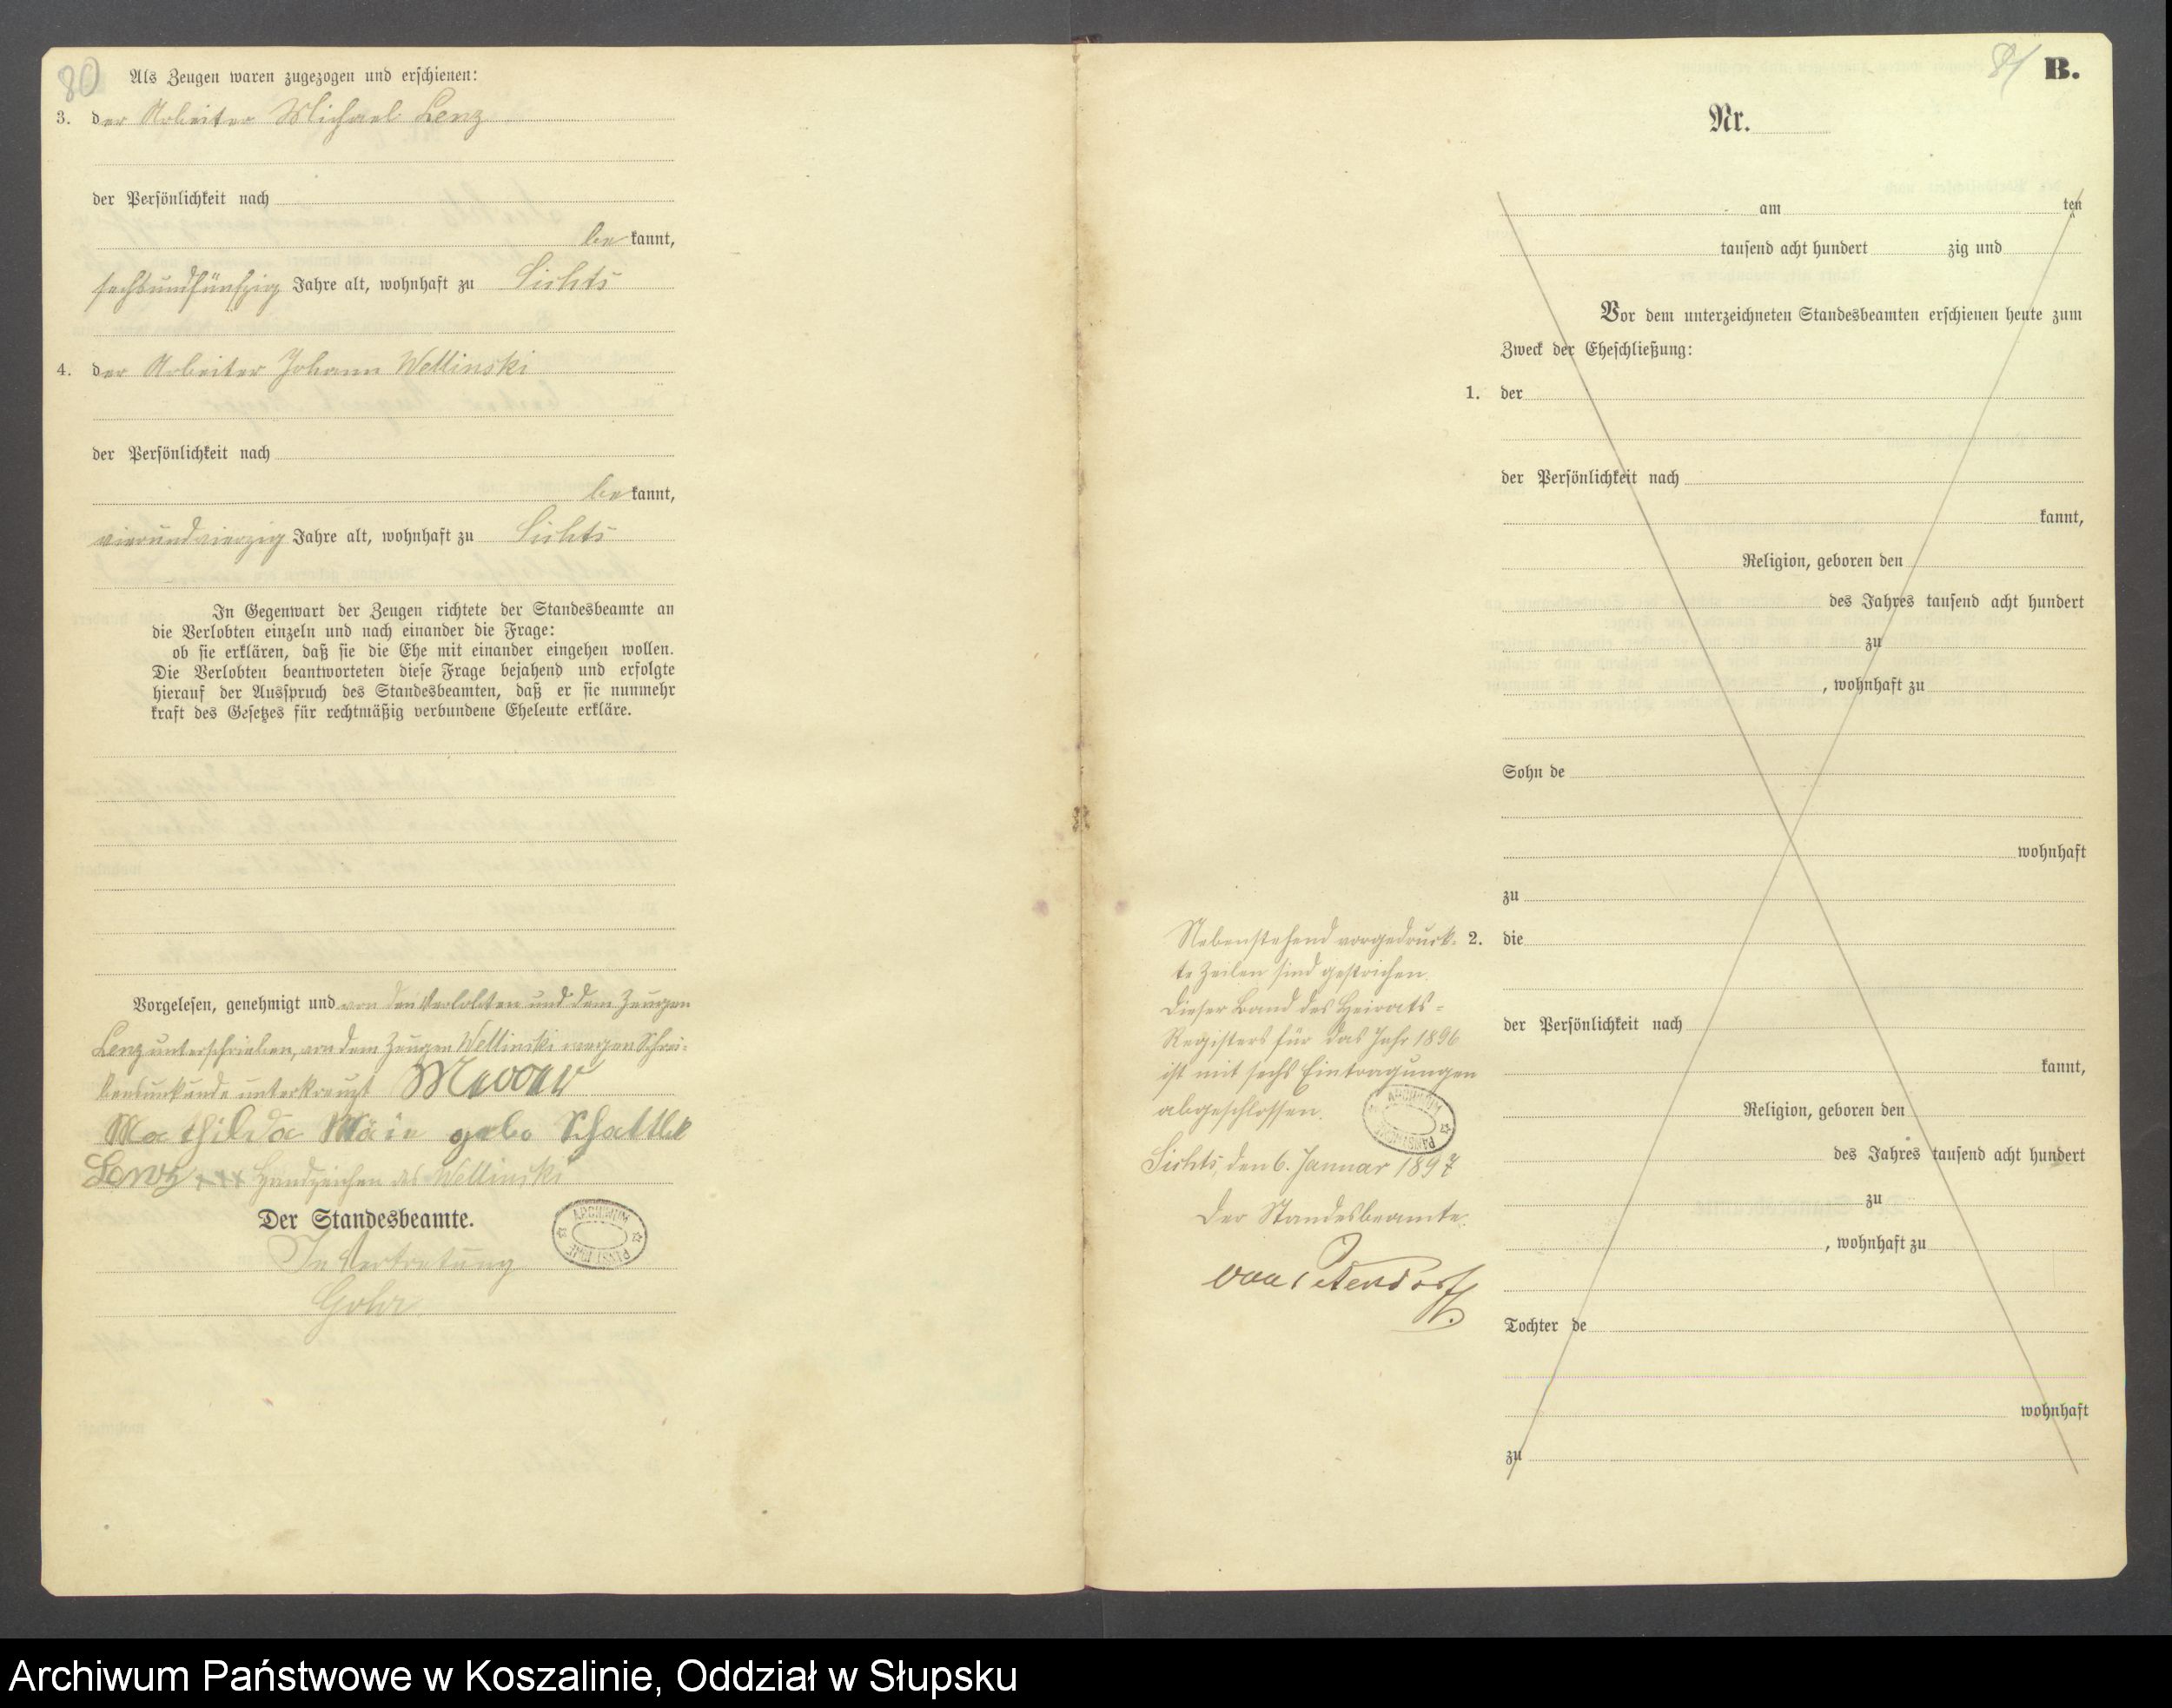 80
Als Zeugen waren zugezogen und erschienen:
3. der Arbeiter Michael Lenz
der Persönlichkeit nach
be kannt,
sechsundfünfzig Jahre alt, wohnhaft zu Lichts
4. der Arbeiter Johann Wellinski
der Persönlichkeit nach
be kannt,
vierundvierzig Jahre alt, wohnhaft zu Lichts
In Gegenwart der Zeugen richtete der Standesbeamte an
die Verlobten einzeln und nach einander die Frage:
ob sie erklären, daß sie die Ehe mit einander eingehen wollen.
Die Verlobten beantworteten diese Frage bejahend und erfolgte
hierauf der Ausspruch des Standesbeamten, daß er sie nunmehr
kraft des Gesetzes für rechtmäßig verbundene Eheleute erkläre.
Vorgelesen, genehmigt und von den Verlobten und dem Zeugen
Lenz unterschrieben, von dem Zeugen Wellinski wegen Schrei-
bensunkunde unterkreuzt
Mathilda gebo
Lenz +++ Handzeichen des Wellinski
Der Standesbeamte.
In Vertretung
ARCHIWUM PAŃSTWOWE
81 B.
Nr.
am ten
tausend acht hundert zig und
Vor dem unterzeichneten Standesbeamten erschienen heute zum
Zweck der Eheschließung:
1. der
der Persönlichkeit nach
kannt,
Religion, geboren den
des Jahres tausend acht hundert
zu
, wohnhaft zu
Sohn de
wohnhaft
zu
2. die
der Persönlichkeit nach
kannt,
Religion, geboren den
des Jahres tausend acht hundert
zu
, wohnhaft zu
Tochter de
wohnhaft
zu
Nebenstehend vorgedruck-
te Zeilen sind gestrichen.
Dieser Band des Heirats-
Registers für das Jahr 1896
ist mit sechs Eintragungen
abgeschlossen.
ARCHIWUM PAŃSTWOWE
Lichts, den 6. Januar 1897
Der Standesbeamte.
Archiwum Państwowe w Koszalinie, Oddział w Słupsku